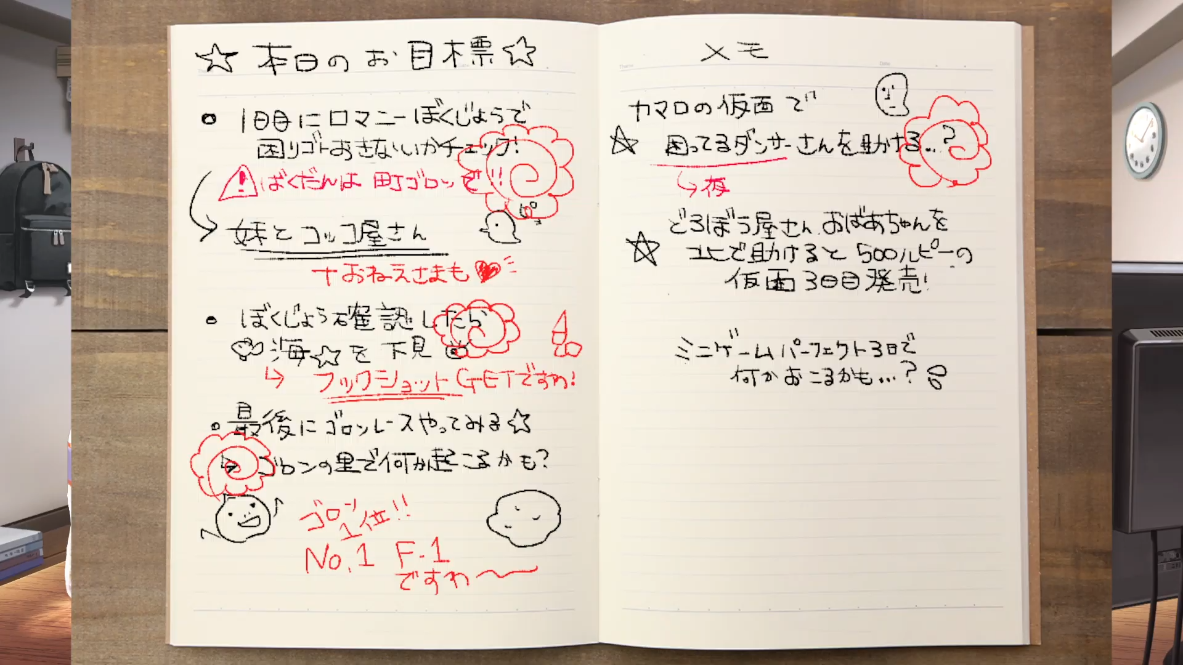 ☆ 本日のお目標☆
• 1日目にロマニーぼくじょうで
困りゴトおきないかチェック!
! ばくだんは 町ゴロッで!!
ピヨ
妹と コッコ屋さん
+おねえさまも♥
• ぼくじょう確認したら
海☆を 下見
フックショットGETですわ!
• 最後にゴロンレースやってみる☆
ゴロンの里で何か起こるかも?
ゴロン
1位!!
No.1 F-1
ですわ〜
メモ
カマロの仮面で
☆ 困ってるダンサーさんを助ける…?
夜
どろぼう屋さん おばあちゃんを
☆ ユミで助けると 500ルピーの
仮面 3日目発売!
ミニゲームパーフェクト3日で
何かおこるかも…?